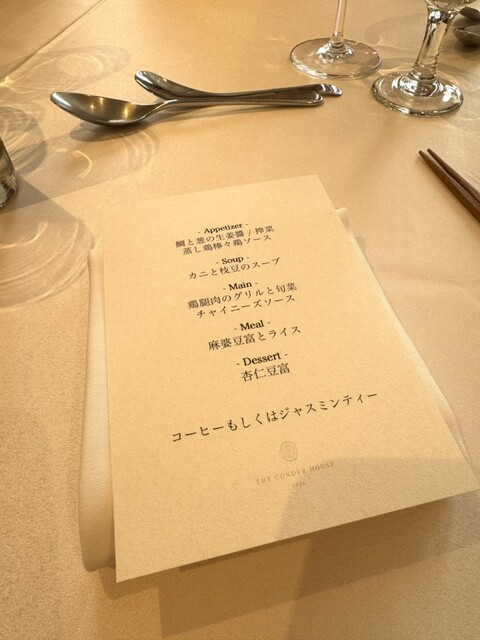 - Appetizer -
鯛と葱の生姜醬 / 搾菜
蒸し鶏棒々鶏ソース
- Soup -
カニと枝豆のスープ
- Main -
鶏腿肉のグリルと旬菜
チャイニーズソース
- Meal -
麻婆豆富とライス
- Dessert -
杏仁豆富
コーヒーもしくはジャスミンティー
THE CONDER HOUSE